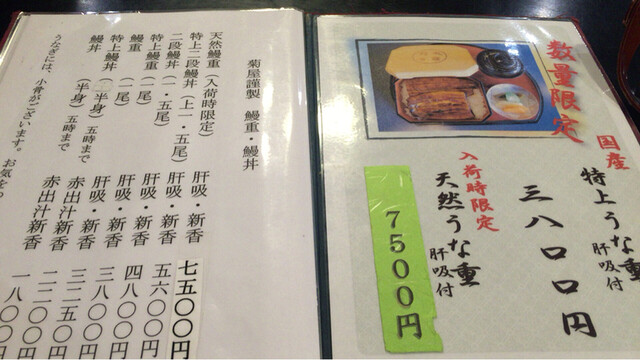 数量限定
国産
特上うな重
肝吸付
三八〇〇円
入荷時限定
天然うな重
肝吸付
7500円
菊屋謹製 鰻重・鰻丼
天然鰻重(入荷時限定) 肝吸・新香 七五〇〇円
特上二段鰻丼(上一・五尾) 肝吸・新香 五六〇〇円
二段鰻丼(一・五尾) 肝吸・新香 四八〇〇円
特上鰻重(一尾) 肝吸・新香 三八〇〇円
鰻重(一尾) 肝吸・新香 三二五〇円
特上鰻丼(半身)五時まで 赤出汁新香 二二〇〇円
鰻丼(半身)五時まで 赤出汁新香 一八〇〇円
うなぎには、小骨がございます。お気を